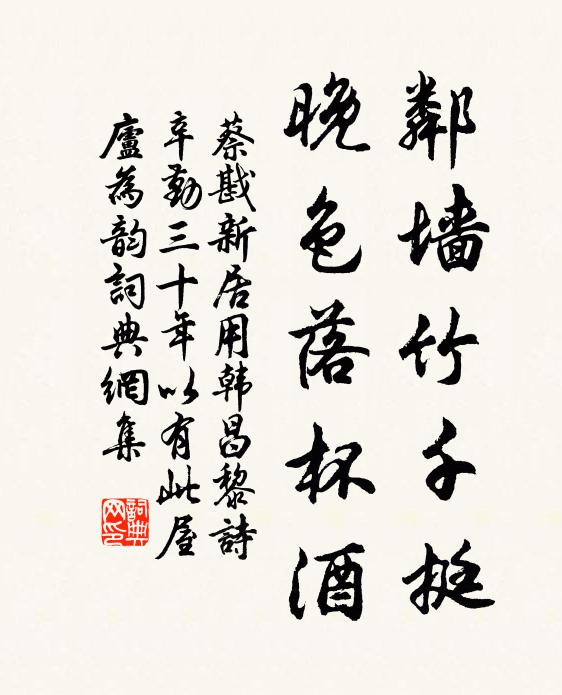 鄰墙竹千挺
晚色落杯酒
蔡戡新居用韩昌黎詩
辛勤三十年以有此屋
廬為韵詞典網集
詞典
网印